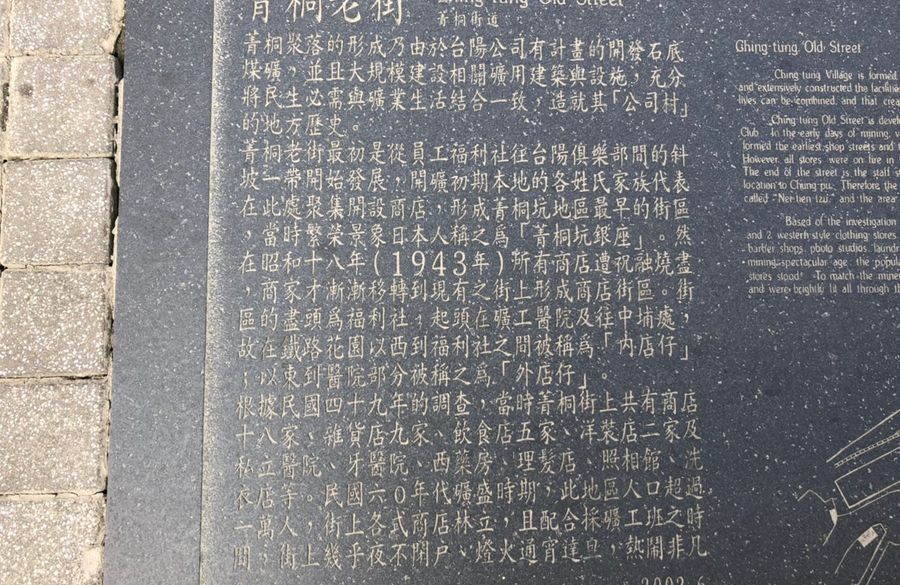 菁桐老街
Ching-tung Old Street
菁桐街道
菁桐聚落的形成乃由於台陽公司有計畫的開發石底
煤礦，並且大規模建設相關礦用建築與設施，充分
將民生必需與礦業生活結合一致，造就其「公司村」
的地方歷史。
菁桐老街最初是從員工福利社往台陽俱樂部間的斜
坡一帶開始發展，開礦初期本地的各姓氏家族代表
在此處聚集開設商店，形成菁桐坑地區最早的街區
，當時繁榮景象日本人稱之為「菁桐坑銀座」。然
在昭和十八年(1943年)所有商店遭祝融燒盡
，商家才漸漸移轉到現有之街上形成商店街區。街
區的盡頭為福利社；起頭在礦工醫院及往中埔處，
故在鐵路花園以西到福利社之間被稱為「內店仔」
；以東到醫院部分被稱之為「外店仔」。
根據民國四十九年的調查，當時菁桐街上共有商店
十八家、雜貨店九家、飲食店五家、洋裝店二家及
私立醫院、牙醫院、西藥房、理髮店、照相館、洗
衣店等。民國六０年代礦盛時期，此地區人口超過
一萬人，街上各式商店林立，且配合採礦工班之時
間，街上幾乎夜不閉戶、燈火通宵達旦，熱鬧非凡
2003.6
Ching-tung Old Street
Ching tung Village is formed
and extensively constructed the facilities
lives can be combined and that crea
Ching-tung Old Street is devel
Club. In the early days of mining, v
formed the earliest shop streets and t
However, all stores were on fire in
The end of the street is the staff
location to Chung-pu. Therefore the
called "Nei-tien tzu," and the area
Based of the investigation
and 2 western-style clothing stores
barber shops, photo studios, laundr
mining-spectacular age, the popula
stores stood. To match the mine
and were brightly lit all through th